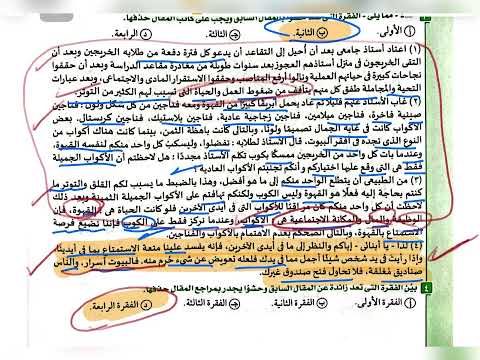 مما يلي - الفقرة التي تعد حشوًا بالمقال السابق ويجب على كاتب المقال حذفها.
أ الفقرة الأولى. ب الثانية. ج الثالثة. د الرابعة.
(١) اعتاد أستاذ جامعى بعد أن أحيل إلى التقاعد أن يدعو كل فترة دفعة من طلابه الخريجين وبعد أن
التقى الخريجون فى منزل أستاذهم العجوز بعد سنوات طويلة من مغادرة مقاعد الدراسة وبعد أن حققوا
نجاحات كبيرة فى حياتهم العملية ونالوا أرفع المناصب وحققوا الاستقرار المادى والاجتماعى، وبعد عبارات
التحية والمجاملة طفق كل منهم يتأفف من ضغوط العمل والحياة التى تسبب لهم الكثير من التوتر.
(٢) غاب الأستاذ عنهم قليلا ثم عاد يحمل أبريقًا كبيرًا من القهوة ومعه فناجين من كل شكل ولون: فناجين
صينية فاخرة، فناجين ميلامين، فناجين زجاجية عادية، فناجين بلاستيك، فناجين كريستال. بعض
الأكواب كانت فى غاية الجمال تصميمًا ولونًا، وبالتالى كانت باهظة الثمن، بينما كانت هناك أكواب من
النوع الذى نجده فى أفقر البيوت. قال الأستاذ لطلابه: تفضلوا، وليسكب كل واحد منكم لنفسه القهوة،
وعندما بات كل واحد من الخريجين ممسكًا بكوب تكلم الأستاذ مجددًا: هل لاحظتم أن الأكواب الجميلة
فقط هى التى وقع عليها اختياركم وأنكم تجنبتم الأكواب العادية؟
(٣) من الطبيعى أن يتطلع الواحد منكم إلى ما هو أفضل، وهذا بالضبط ما يسبب لكم القلق والتوتر ما
كنتم بحاجة إليه فعلًا هو القهوة وليس الكوب ولكنكم تهافتم على الأكواب الجميلة الثمينة وبعد ذلك
لاحظت أن كل واحد منكم كان مراقبًا للأكواب التى فى أيدى الآخرين فلو كانت الحياة هى القهوة، فإن
الوظيفة والمال والمكانة الاجتماعية هى الأكواب، وعندما نركز فقط على الكوب فإننا نضيع فرصة
الاستمتاع بالقهوة، وبالتالى أنصحكم بعدم الاهتمام بالأكواب والفناجين.
(٤) لذا - يا أبنائى - إياكم والنظر إلى ما فى أيدى الآخرين، فإنه يفسد علينا متعة الاستمتاع بما فى أيدينا
وإذا رأيت فى يد شخص شيئًا أجمل مما فى يدك فلعله تعويض عن شىء حُرم منه، فالبيوت أسرار، والناس
صناديق مُغلقة، فلا تحاول فتح صندوق غيرك.
٤ بيّن الفقرة التى تعد زائدة عن المقال السابق وحشوًا يجدر بمراجع المقال حذفها.
أ الفقرة الأولى. ب الفقرة الثانية. ج الفقرة الثالثة. د الفقرة الرابعة.